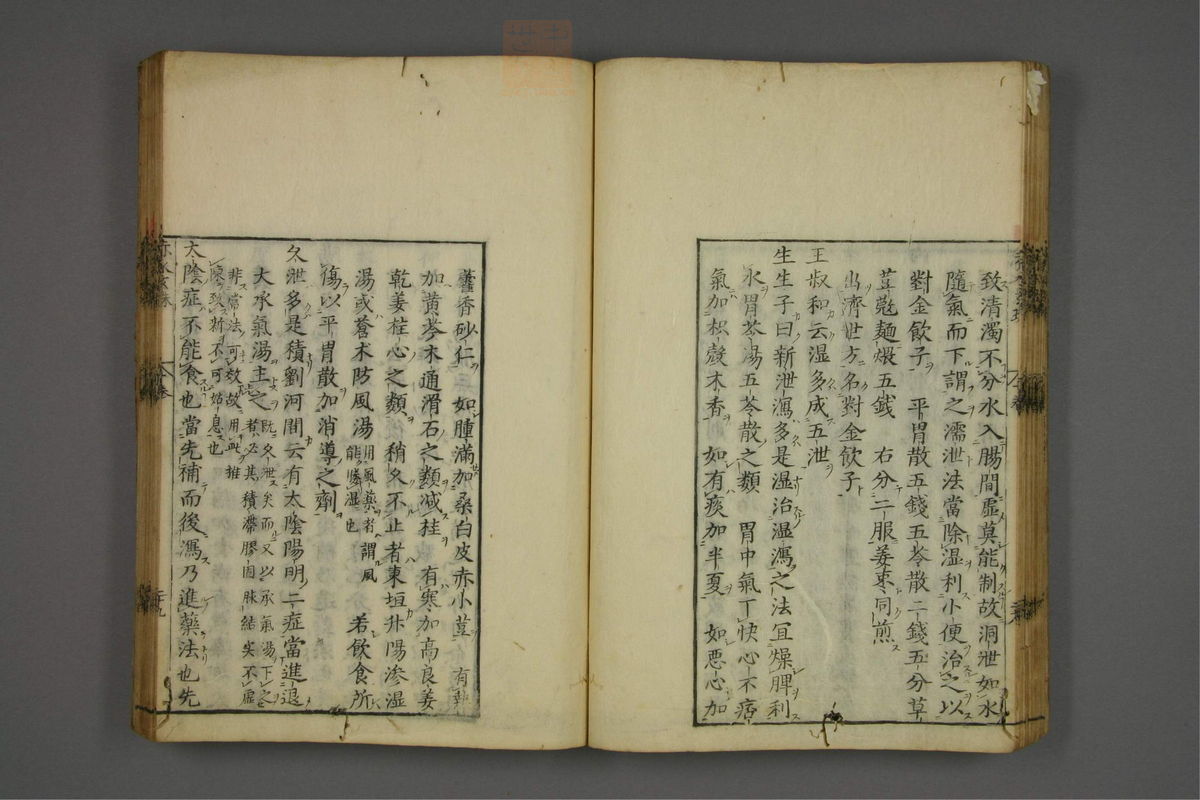 致清濁不分水入腸間虛莫能制故洞泄如水
隨氣而下謂之濡泄法當除湿利小便治之以
對金飲子　平胃散五錢五苓散二錢五分草
荳蔲麺煨五錢　右分二服姜枣同煎
出濟世方名對金飲子
王叔和云湿多成五泄
生生子曰新泄瀉多是湿治湿瀉之法宜燥脾利
水胃苓湯五苓散之類　胃中氣丁快心不痞
氣加枳殼木香　如有痰加半夏　如悪心加
藿香砂仁　如腫滿加桑白皮赤小荳　有熱
加黄芩木通滑石之類減桂　有寒加高良姜
乾姜桂心之類　稍久不止者東垣升陽滲湿
湯或蒼术防風湯用風藥者謂風能勝湿也　若飲食所
傷以平胃散加消導之劑
久泄多是積劉河間云有太陰陽明二症當進退
大承氣湯主之既久泄矣而又以承氣湯下之者必其積滯膠固脉結实不虛
非常法可效故用此推陳致新不可姑息也
太陰症不能食也當先補而後瀉乃進藥法也先